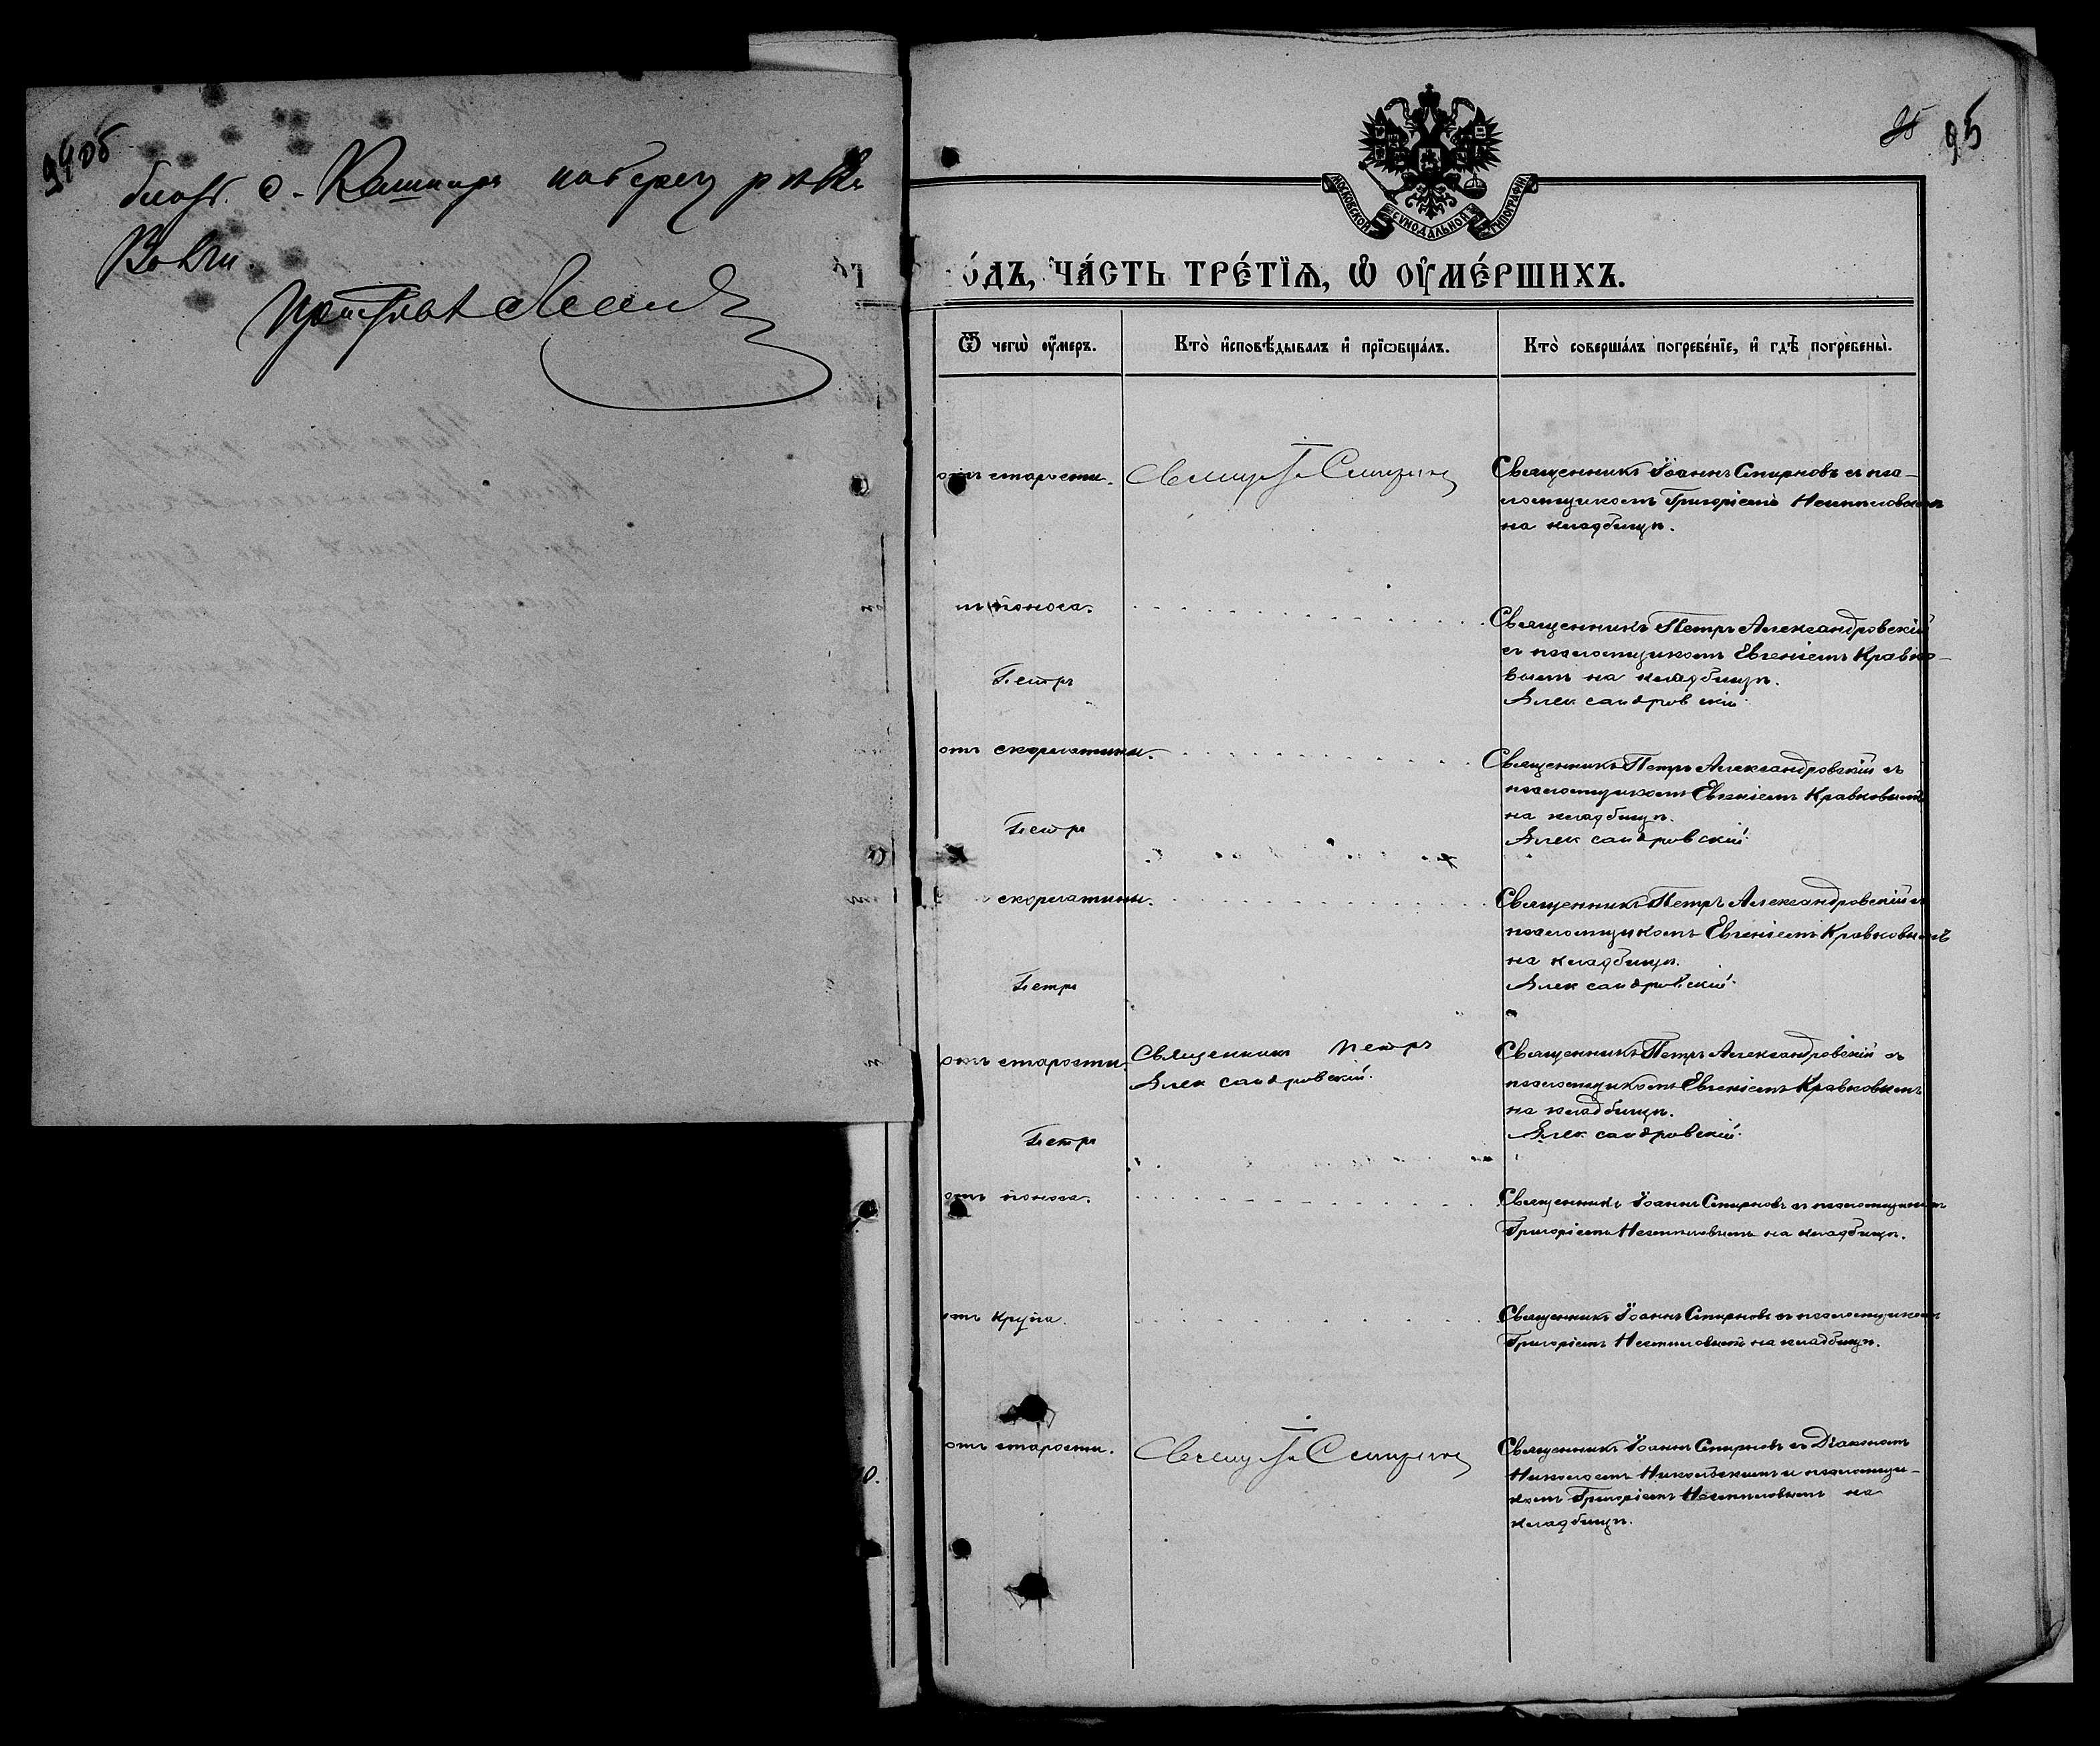 94об
близъ с. Кашпиръ на берегу рѣки
Волги.
95
МОСКОВСКОЙ СѴНОДАЛЬНОЙ ТИПОГРАФІИ
о́дъ, ча́сть тре́тїѧ, ѡ҆ ᲂу҆ме́ршихъ.
Ѿ чегѡ̀ ᲂу҆́меръ.
Кто̀ и҆сповѣ́дывалъ и҆ прїѡбща́лъ.
Кто̀ соверша́лъ погребе́нїе, и҆ гдѣ̀ погребены̀.
отъ старости.
Свящ. І. Смирновъ
Священникъ Іоаннъ Смирновъ съ пса-
ломщикомъ Григоріемъ
на кладбищѣ.
поноса.
Священникъ Петръ Александровскій
съ псаломщикомъ Евгеніемъ Кравко-
вымъ на кладбищѣ.
Петръ Александровскій.
отъ скорлатины.
Священникъ Петръ Александровскій съ
псаломщикомъ Евгеніемъ Кравковымъ
на кладбищѣ.
Петръ Александровскій.
скорлатины.
Священникъ Петръ Александровскій съ
псаломщикомъ Евгеніемъ Кравковымъ
на кладбищѣ.
Петръ Александровскій.
отъ старости.
Священникъ Петръ
Александровскій.
Священникъ Петръ Александровскій съ
псаломщикомъ Евгеніемъ Кравковымъ
на кладбищѣ.
Петръ Александровскій.
отъ поноса.
Священникъ Іоаннъ Смирновъ съ псаломщикомъ
Григоріемъ на кладбищѣ.
отъ крупа.
Священникъ Іоаннъ Смирновъ съ псаломщикомъ
Григоріемъ на кладбищѣ.
отъ старости.
Свящ. І. Смирновъ
Священникъ Іоаннъ Смирновъ съ Діакономъ
Николаемъ Никольскимъ и псаломщи-
комъ Григоріемъ на
кладбищѣ.